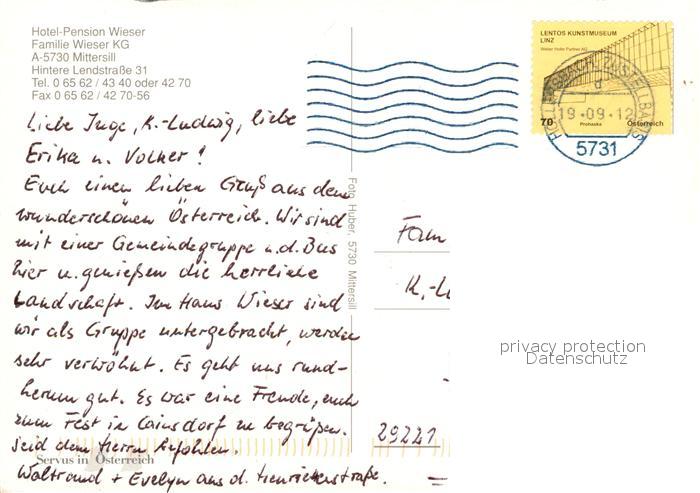 Hotel-Pension Wieser
Familie Wieser KG
A-5730 Mittersill
Hintere Lendstraße 31
Tel. 0 65 62 / 43 40 oder 42 70
Fax 0 65 62 / 42 70-56
Liebe Inge, K.-Ludwig, liebe
Erika u. Volker!
Euch einen lieben Gruß aus dem
wunderschönen Österreich. Wir sind
mit einer Gemeindegruppe u. d. Bus
hier u. genießen die herrliche
Landschaft. Im Haus Wieser sind
wir als Gruppe untergebracht, werden
sehr verwöhnt. Es geht uns rund-
herum gut. Es war eine Freude, euch
zum Fest in Cainsdorf zu begrüßen.
Seid dem Herrn befohlen.
Waltraud + Evelyn aus d. Henriettenstraße.
Servus in Österreich
Foto Huber, 5730 Mittersill
LENTOS KUNSTMUSEUM
LINZ
Weber Hofer Partner AG
70
Prohaska
Österreich
19-09-12
5731
Fam
K.-L
29221
privacy protection
Datenschutz